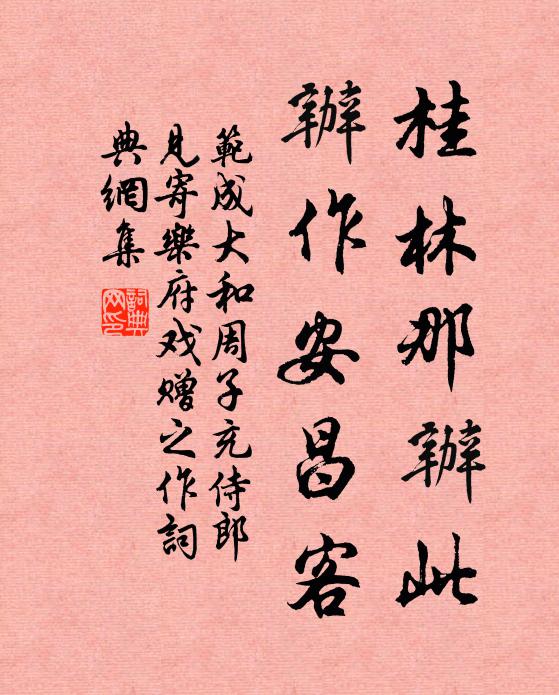 桂林那辦此
辦作安昌客
範成大和周子充侍郎
見寄樂府戏贈之作詞
典網集
詞典网印